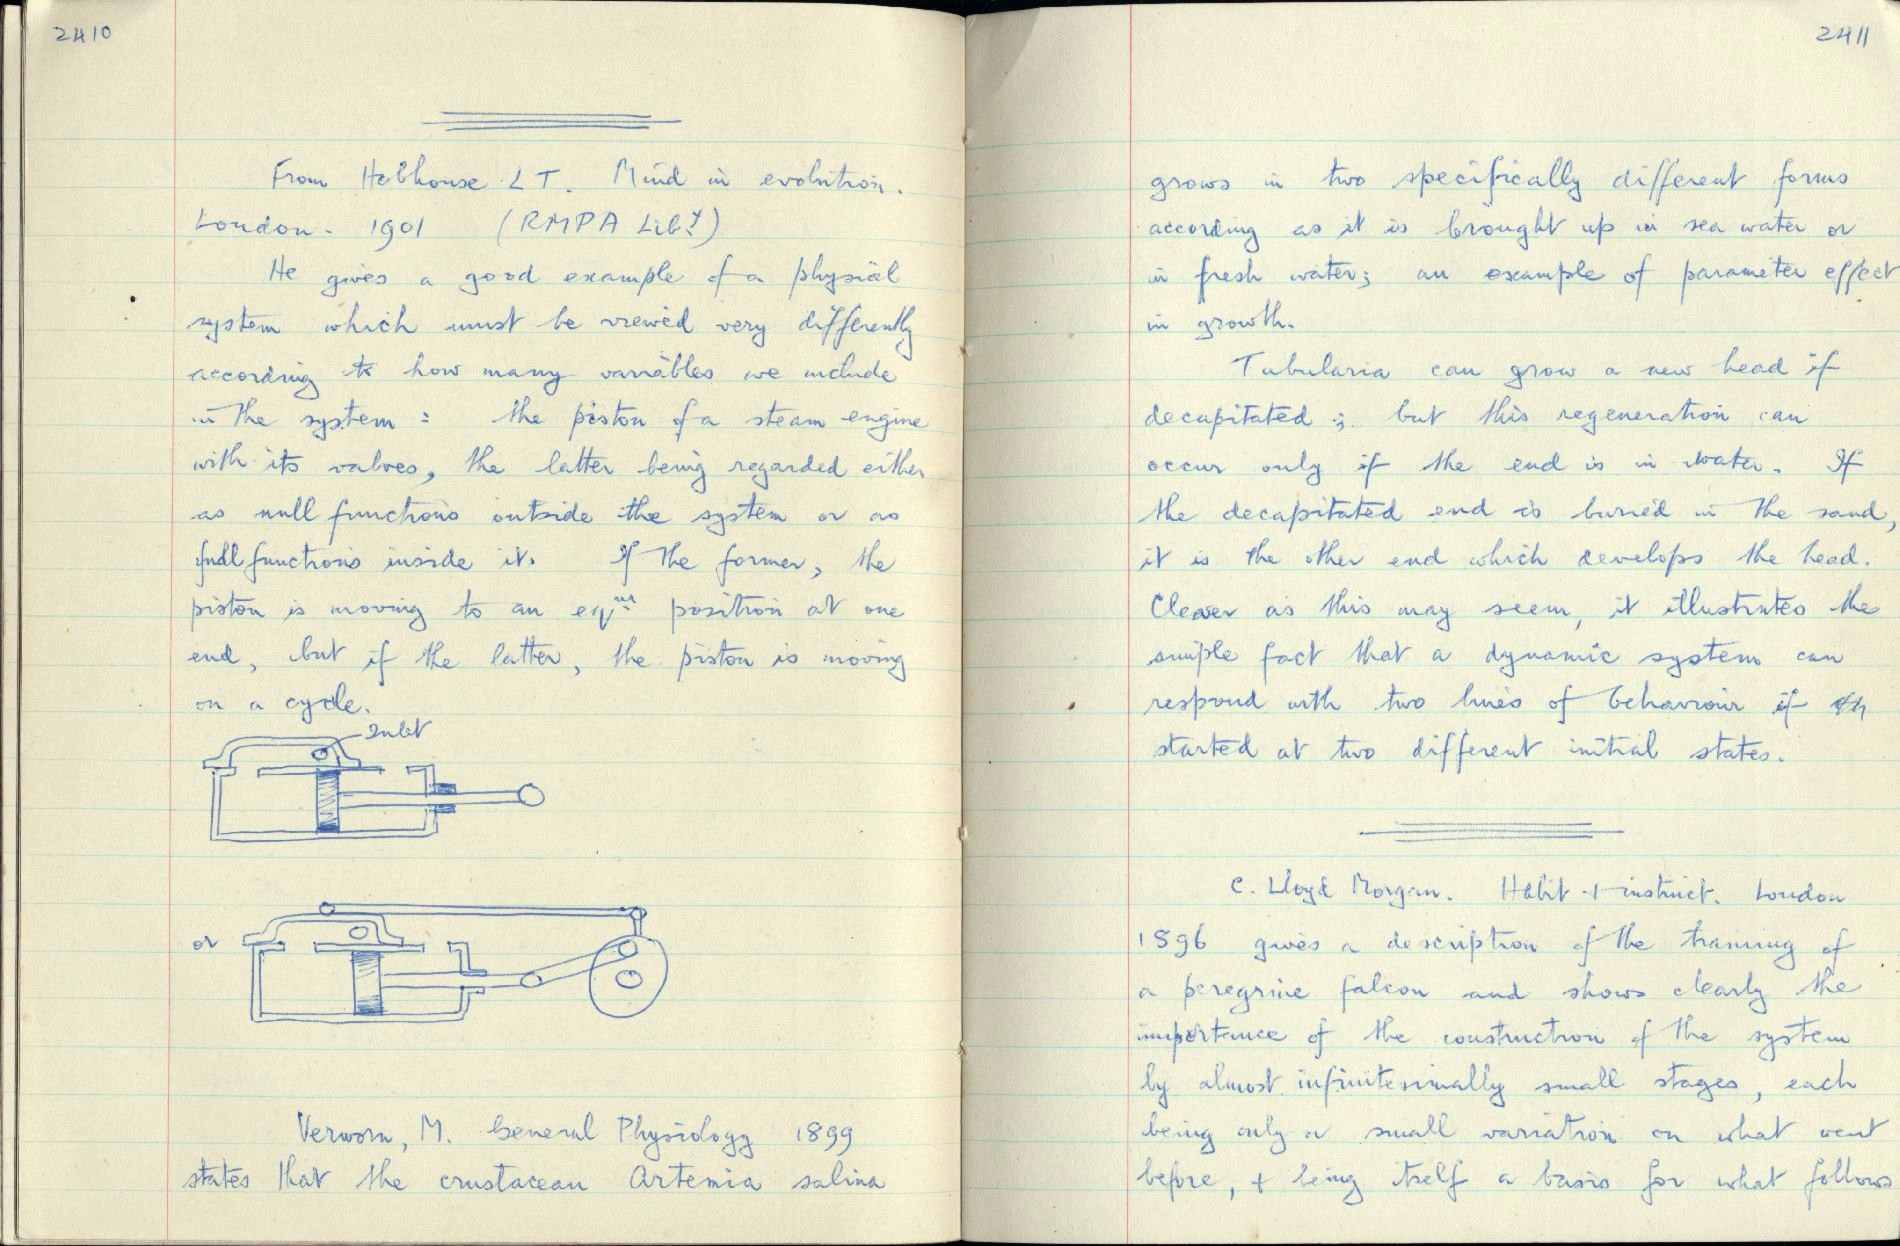 2410
From Hobhouse LT. Mind in evolution.
London. 1901 (RMPA Liby)
He gives a good example of a physical
system which must be viewed very differently
according to how many variables we include
in the system : the piston of a steam engine
with its valves, the latter being regarded either
as null functions outside the system or as
full functions inside it. If the former, the
piston is moving to an eqm position at one
end, but if the latter, the piston is moving
on a cycle.
Inlet
or
Verworn, M. General Physiology 1899
states that the crustacean Artemia salina
2411
grows in two specifically different forms
according as it is brought up in sea water or
in fresh water; an example of parameter effect
in growth.
Tubularia can grow a new head if
decapitated ; but this regeneration can
occur only if the end is in water. If
the decapitated end is buried in the sand,
it is the other end which develops the head.
Clever as this may seem, it illustrates the
simple fact that a dynamic system can
respond with two lines of behaviour if
started at two different initial states.
C. Lloyd Morgan. Habit + instinct. London
1896 gives a description of the training of
a peregrine falcon and shows clearly the
importance of the construction of the system
by almost infinitesimally small stages, each
being only a small variation on what went
before, + being itself a basis for what follows